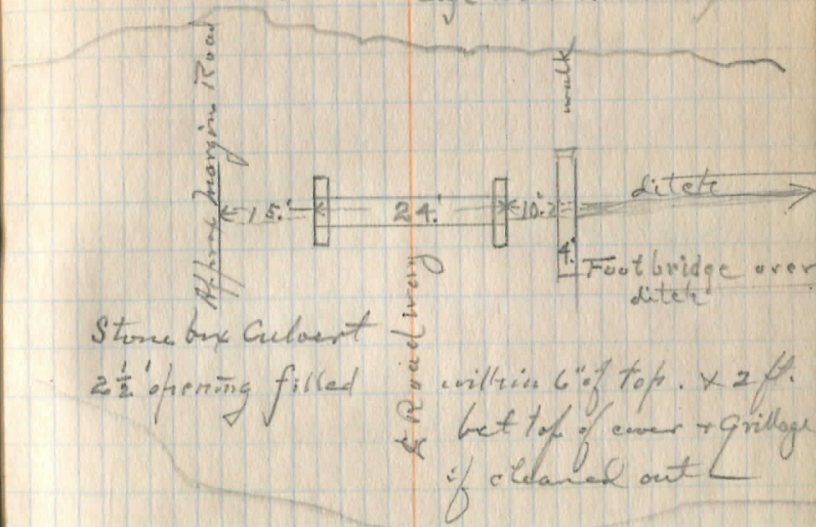 walk
Approx Margin Road
15.'
24.'
10.2
ditch
4.'
Foot bridge over
ditch
Stone box Culvert
2½' opening filled within 6" of top. x 2 ft.
bet top of cover + Grillage
if cleaned out
℄ Roadway